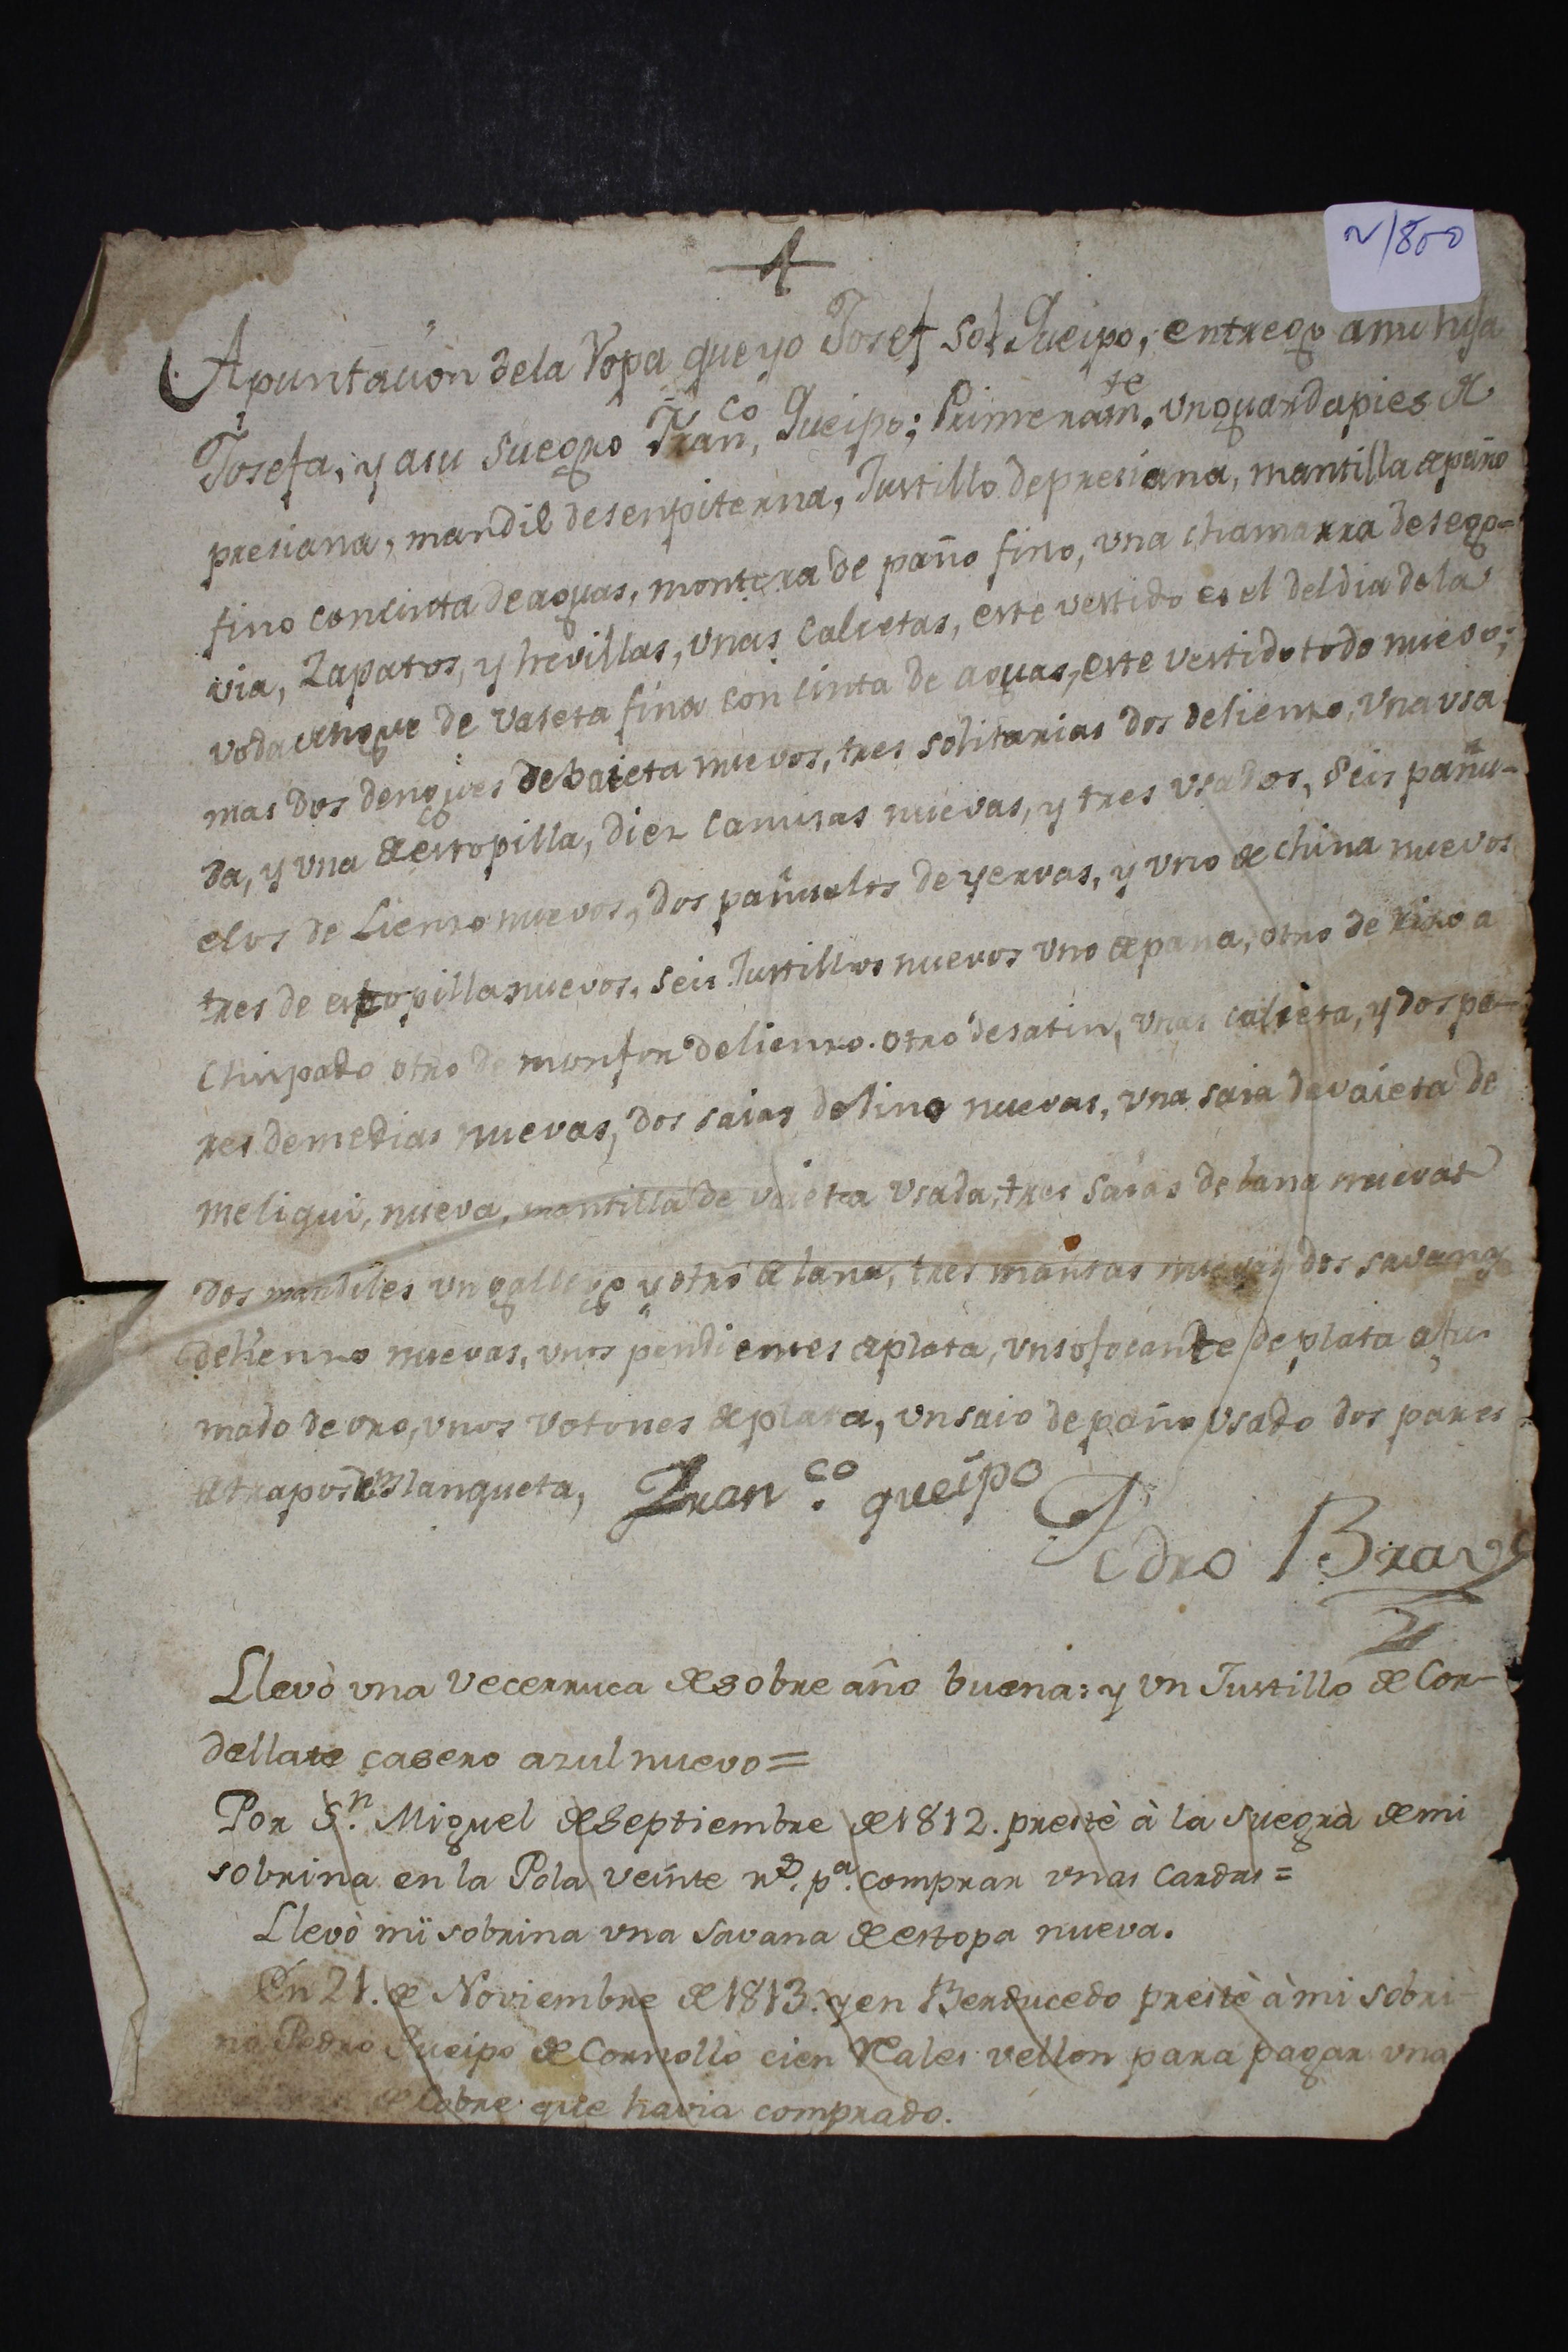 N/800
Apuntacion dela Ropa que yo Josef Queipo, entrego a mi hija
Josefa, y asu suegro Fran.co Queipo; Primeram.te un guardapies de
presiana, mandil desenpiterna, Justillo depresiana, mantilla de paño
fino concinta deaguas, montera de paño fino, una chamarra desego=
via, Zapatos, y hevillas, unas calcetas, este vestido es el deldia dela
voda dengue de vaieta fina con cinta de aguas, este vestido todo nuevo;
mas dos dengues debaieta nuevos, tres solitarias dos delienzo, una usa
da, y una de estopilla, diez camisas nuevas, y tres usados, seis pañu-
elos de Lienzo nuevos, dos pañuelos de yervas, y uno de china nuevos
tres de estopilla nuevos, seis Justillos nuevos uno de pana, otro de rizo a
chispado otro de monfor delienzo. otro desatin, unas calceta, y dos pa-
res demedias nuevas, dos saias delino nuevas, una saia devaieta de
meliqui, nueva, mantilla de vaieta usada, tres saias de lana nuevas
dos mandiles un gallego y otro de lana, tres mantas nuevas dos savanas
delienzo nuevas, unos pendientes de plata, un sofocante de plata afu
mado de oro, unos votones de plata, un saio de paño usado dos pares
de trapos de Blanqueta, Fran.co queipo
Pedro Bravo
Llevò una vecerruca de sobre año buena: y un Justillo de Cor-
dellate casero azul nuevo=
Por S.n Miguel de Septiembre de 1812. prestè à la suegra de mi
sobrina en la Pola veinte r.s p.a comprar unas cardas=
Llevò mi sobrina una savana de estopa nueva.
En 21. de Noviembre de 1813. y en Berducedo prestè à mi sobri-
no Pedro Queipo de Cornollo cien Reales vellon para pagar una
de Cobre que havia comprado.